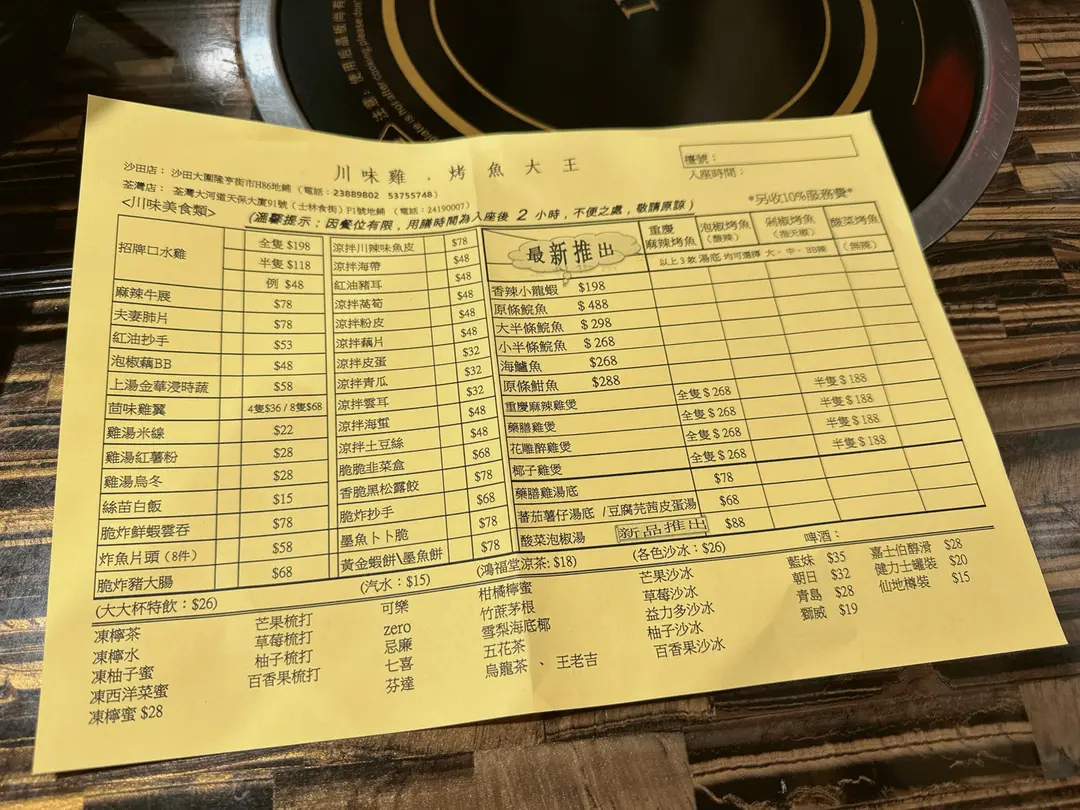 川味雞．烤魚大王
沙田店：沙田大圍隆亨街市H86地鋪（電話：23889802 53755748）
荃灣店：荃灣大河道天保大廈91號（士林食街）F1號地鋪（電話：24190007）
檯號：
入座時間：
*另收10%服務費*
<川味美食類>
(溫馨提示：因餐位有限，用膳時間為入座後 2 小時，不便之處，敬請原諒)
招牌口水雞 全隻 $198
半隻 $118
例 $48
麻辣牛展 $78
夫妻肺片 $78
紅油抄手 $53
泡椒藕BB $48
上湯金華浸時蔬 $58
茴味雞翼 4隻$36 / 8隻$68
雞湯米線 $22
雞湯紅薯粉 $28
雞湯烏冬 $28
絲苗白飯 $15
脆炸鮮蝦雲吞 $78
炸魚片頭 (8件) $58
脆炸豬大腸 $68
涼拌川辣味魚皮 $78
涼拌海帶 $48
紅油豬耳 $48
涼拌萵筍 $48
涼拌粉皮 $48
涼拌藕片 $48
涼拌皮蛋 $32
涼拌青瓜 $32
涼拌雲耳 $32
涼拌海蜇 $48
涼拌土豆絲 $48
脆脆韭菜盒 $68
香脆黑松露餃 $78
脆炸抄手 $68
墨魚卜卜脆 $78
黃金蝦餅\墨魚餅 $78
最新推出
重慶麻辣烤魚
泡椒烤魚（酸辣）
剁椒烤魚（指天椒）
酸菜烤魚（無辣）
以上3款湯底均可選擇 大、中、BB辣
香辣小龍蝦 $198
原條鯇魚 $488
大半條鯇魚 $298
小半條鯇魚 $268
海鱸魚 $268
原條鮒魚 $288
重慶麻辣雞煲 全隻 $268 半隻 $188
藥膳雞煲 半隻 $188
花雕醉雞煲 全隻 $268 半隻 $188
椰子雞煲 全隻 $268 半隻 $188
藥膳雞湯底 $78
蕃茄薯仔湯底 /豆腐芫茜皮蛋湯 $68
酸菜泡椒湯 新品推出 $88
(大大杯特飲：$26)
凍檸茶
凍檸水
凍柚子蜜
凍西洋菜蜜
凍檸蜜 $28
芒果梳打
草莓梳打
柚子梳打
百香果梳打
(汽水：$15)
可樂
zero
忌廉
七喜
芬達
(鴻福堂涼茶: $18)
柑橘檸蜜
竹蔗茅根
雪梨海底椰
五花茶
烏龍茶 、王老吉
(各色沙冰：$26)
芒果沙冰
草莓沙冰
益力多沙冰
柚子沙冰
百香果沙冰
啤酒：
藍妹 $35
朝日 $32
青島 $28
獅威 $19
嘉士伯醇滑 $28
健力士罐裝 $20
仙地樽裝 $15